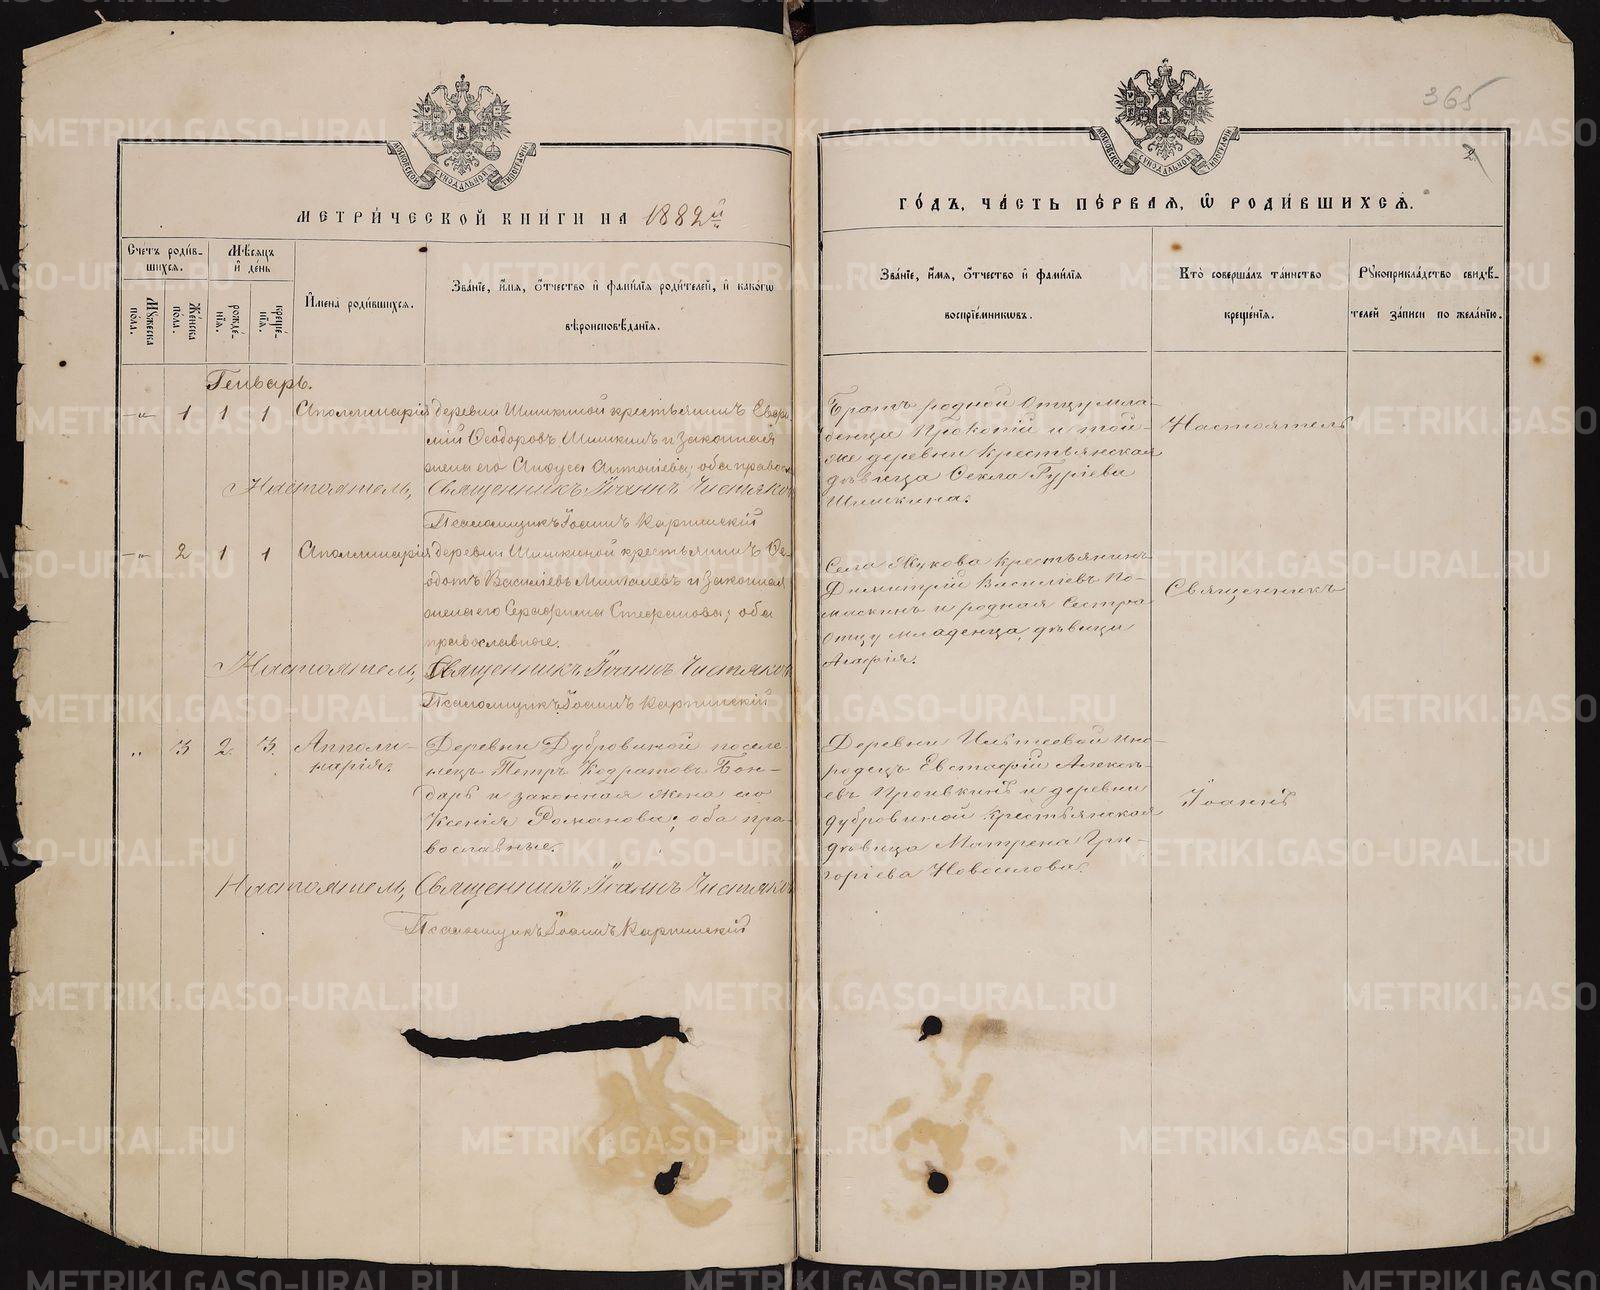 365
2
МЕТРИ́ЧЕСКОЙ КНИ́ГИ НА 1882й
ГО́ДЪ, ЧА́СТЬ ПЕ́РВАЯ, Ѡ РОДИ́ВШИХСѦ.
МОСКОВСКОЙ СѴНОДАЛЬНОЙ ТИПОГРАФІИ
МОСКОВСКОЙ СѴНОДАЛЬНОЙ ТИПОГРАФІИ
Счетъ роди́в-
шихся.
Мѣсяцъ
й де́нь
Мꙋжеска по́ла.
Же́нска по́ла.
рожде́-
нїя.
креще́-
нїя.
И҆мена роди́вшихся.
Зва́нїе, и҆́мя, ѻ҆́тчество и҆ фами́лїя роди́телей, и҆ какогѡ
вѣроисповѣ́данїя.
Зва́нїе, и҆́мя, ѻ҆́тчество и҆ фами́лїя
воспрїе́мникѡвъ.
Кто̀ соверша́лъ та́инство
креще́нїя.
Рꙋкоприкла́дство свидѣ́-
телей за́писи по жела́нїю.
Генварь.
—„— 1 1 1 Аполлинарія
деревни Шишкиной крестьянинъ
Ѳеодоровъ Шишкинъ и законная
жена его Антоніева; оба право
Настоятель, Священникъ Іоаннъ Чистяков
Псаломщикъ Іоаннъ Карпинскій
Братъ родной отцу мла-
денца Прокопій и той-
же деревни крестьянская
дѣвица Ѳекла Гуріева
Шишкина.
Настоятель
—„— 2 1 1 Аполлинарія
деревни Шишкиной крестьянинъ Ѳе-
дотъ Васильевъ и законная
жена его Серафима Стефанова; оба
православные.
Настоятель, Священникъ Іоаннъ Чистяков
Псаломщикъ Іоаннъ Карпинскій
Села Жукова крестьянинъ
Димитрій Василіевъ По-
маскинъ и родная сестра
отцу младенца, дѣвица
Агафія.
Священникъ
„ 3 2. 3. Апполи-
нарія.
Деревни Дубровиной поселе-
нецъ Петръ Кодратовъ Бон-
дарь и законная жена его
Ксенія Романова; оба пра-
вославные.
Настоятель, Священникъ Іоаннъ Чистяков
Псаломщикъ Іоаннъ Карпинскій
Деревни ино-
родецъ Евстафій Алексѣ-
евъ и деревни
дубровиной крестьянская
дѣвица Матрена Гри-
горіева Новоселова.
Іоаннъ
METRIKI.GASO-URAL.RU